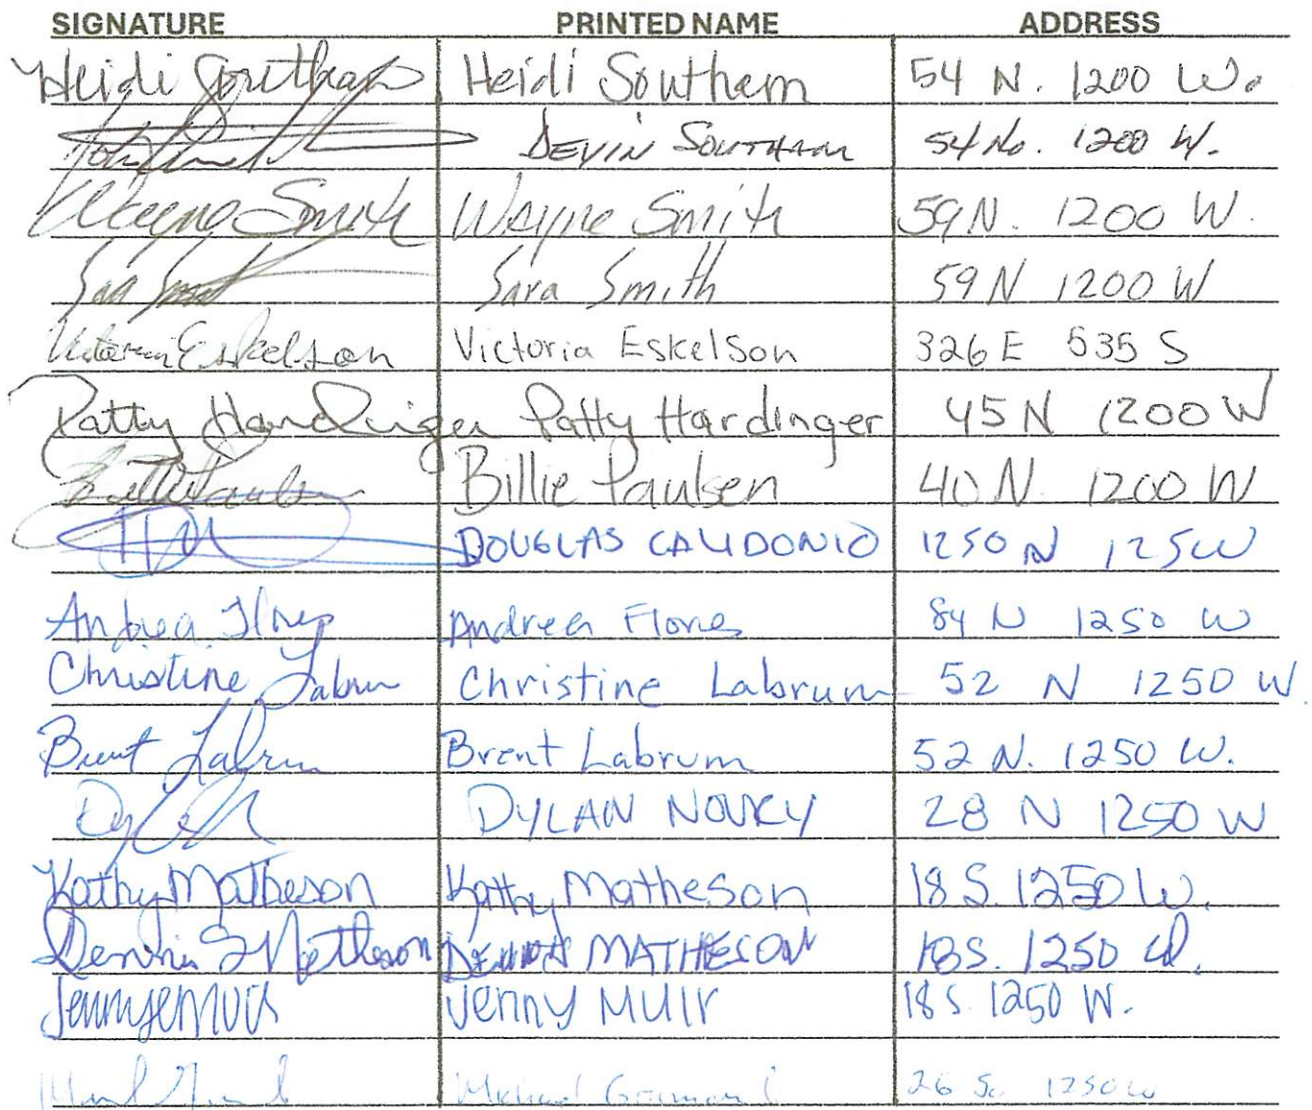 SIGNATURE PRINTED NAME ADDRESS
Heidi Southam Heidi Southam 54 N. 1200 W.
DEVIN SOUTHAM 54 No. 1200 W.
Wayne Smith Wayne Smith 59 N. 1200 W.
Sara Smith Sara Smith 59 N 1200 W
Victoria Eskelson Victoria Eskelson 326 E 535 S
Patty Hardinger Patty Hardinger 45 N 1200 W
Billie Paulsen Billie Paulsen 40 N 1200 W
DOUGLAS CALIDONIO 1250 N 125 W
Andrea Flores Andrea Flores 84 N 1250 W
Christine Labrum Christine Labrum 52 N 1250 W.
Brent Labrum Brent Labrum 52 N. 1250 W.
DYLAN 28 N 1250 W
Kathy Matheson Kathy Matheson 18 S. 1250 W.
Dennis S Matheson DENNIS MATHESON 18 S. 1250 W.
Jenny Muir 18 S. 1250 W.
Michael 26 So 1250 W